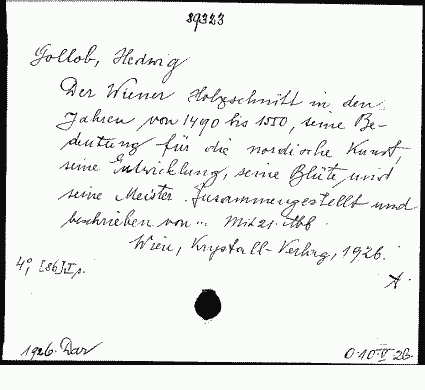 89323
Gollob, Hedwig
Der Wiener Holzschnitt in den
Jahren von 1490 bis 1550, seine Be-
deutung für die nordische Kunst,
seine Entwicklung, seine Blüte und
seine Meister. Zusammengestellt und
beschrieben von ... Mit 21. Abb.
Wien, Krystall-Verlag, 1926.
4°, [86] I p.
1926. Dar